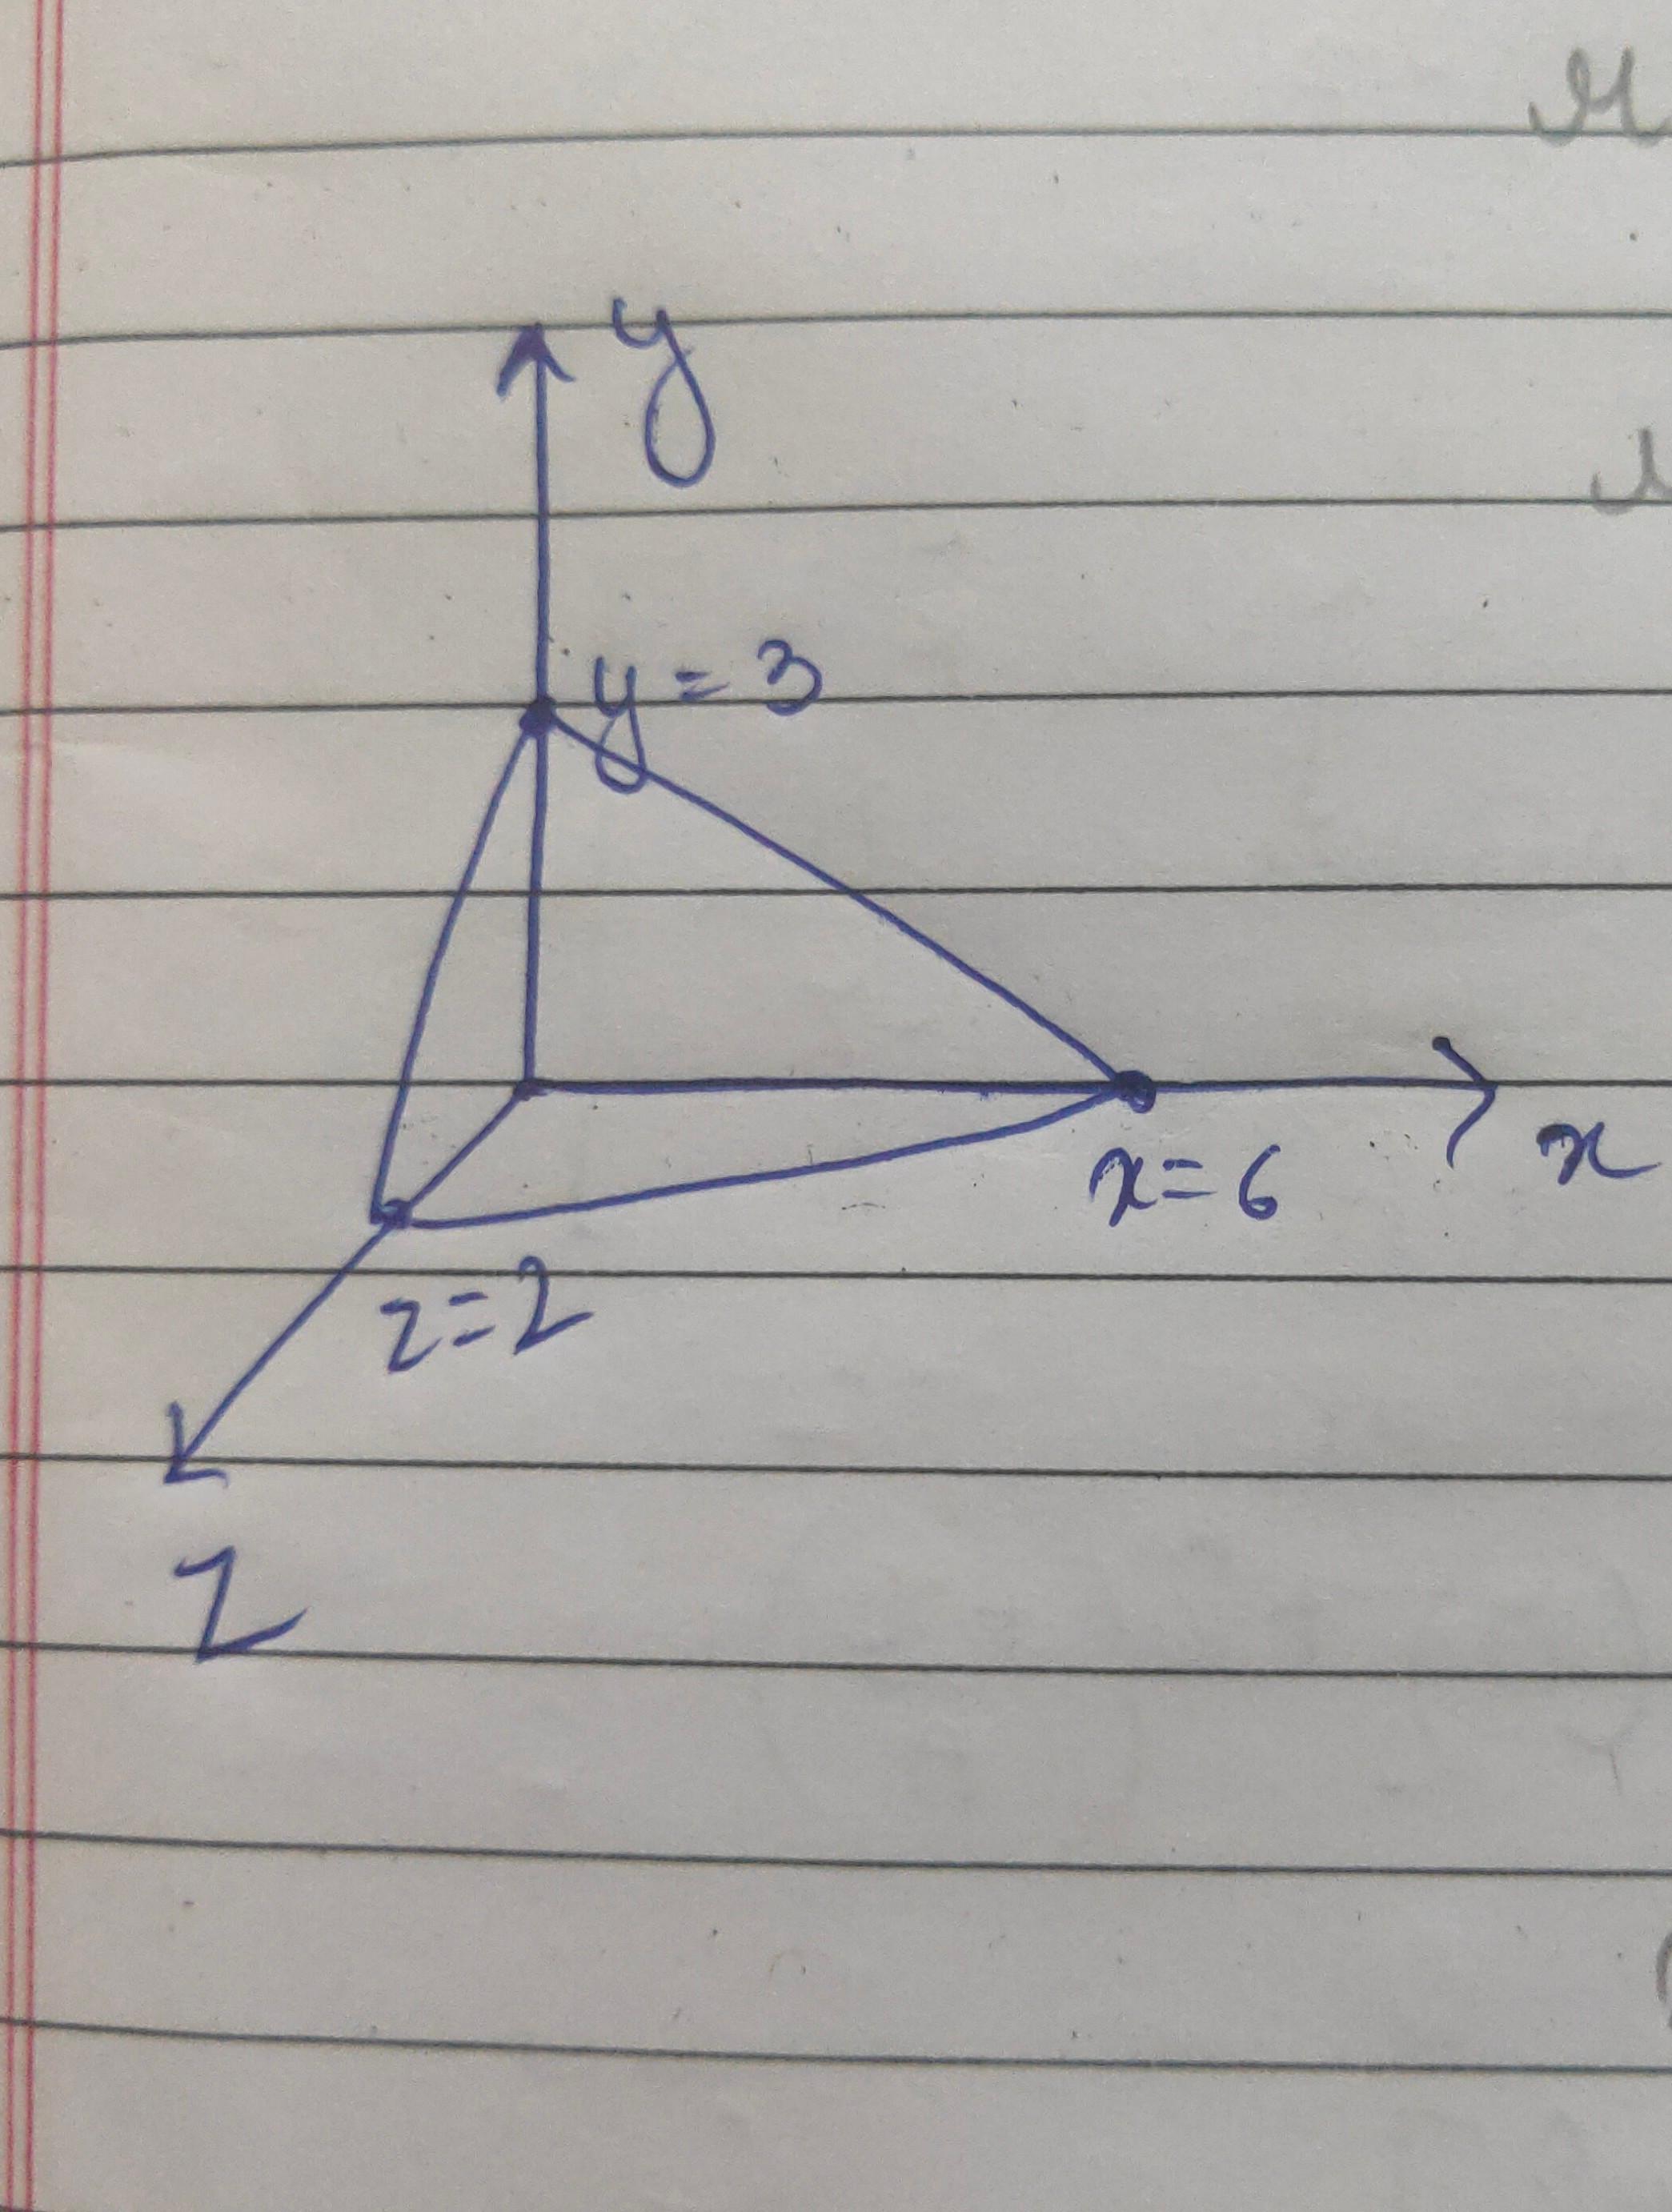 y
y = 3
x
x = 6
z = 2
Z